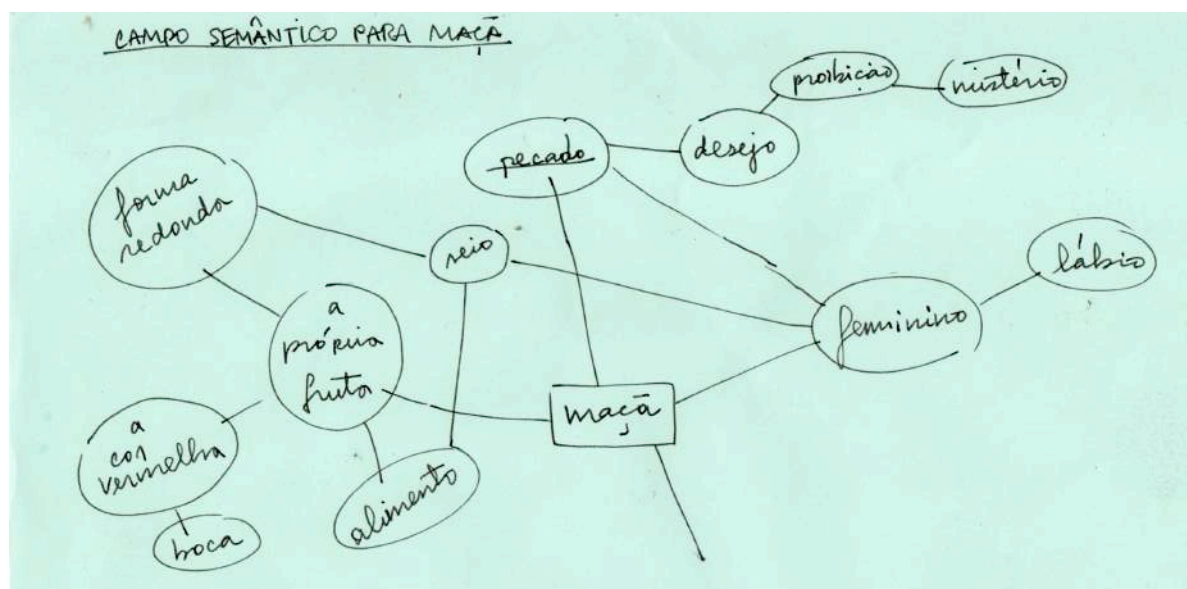 CAMPO SEMÂNTICO PARA MAÇÃ
proibição
mistério
pecado
desejo
forma
redonda
seio
lábio
a
própria
fruta
feminino
maçã
a
cor
vermelha
alimento
boca